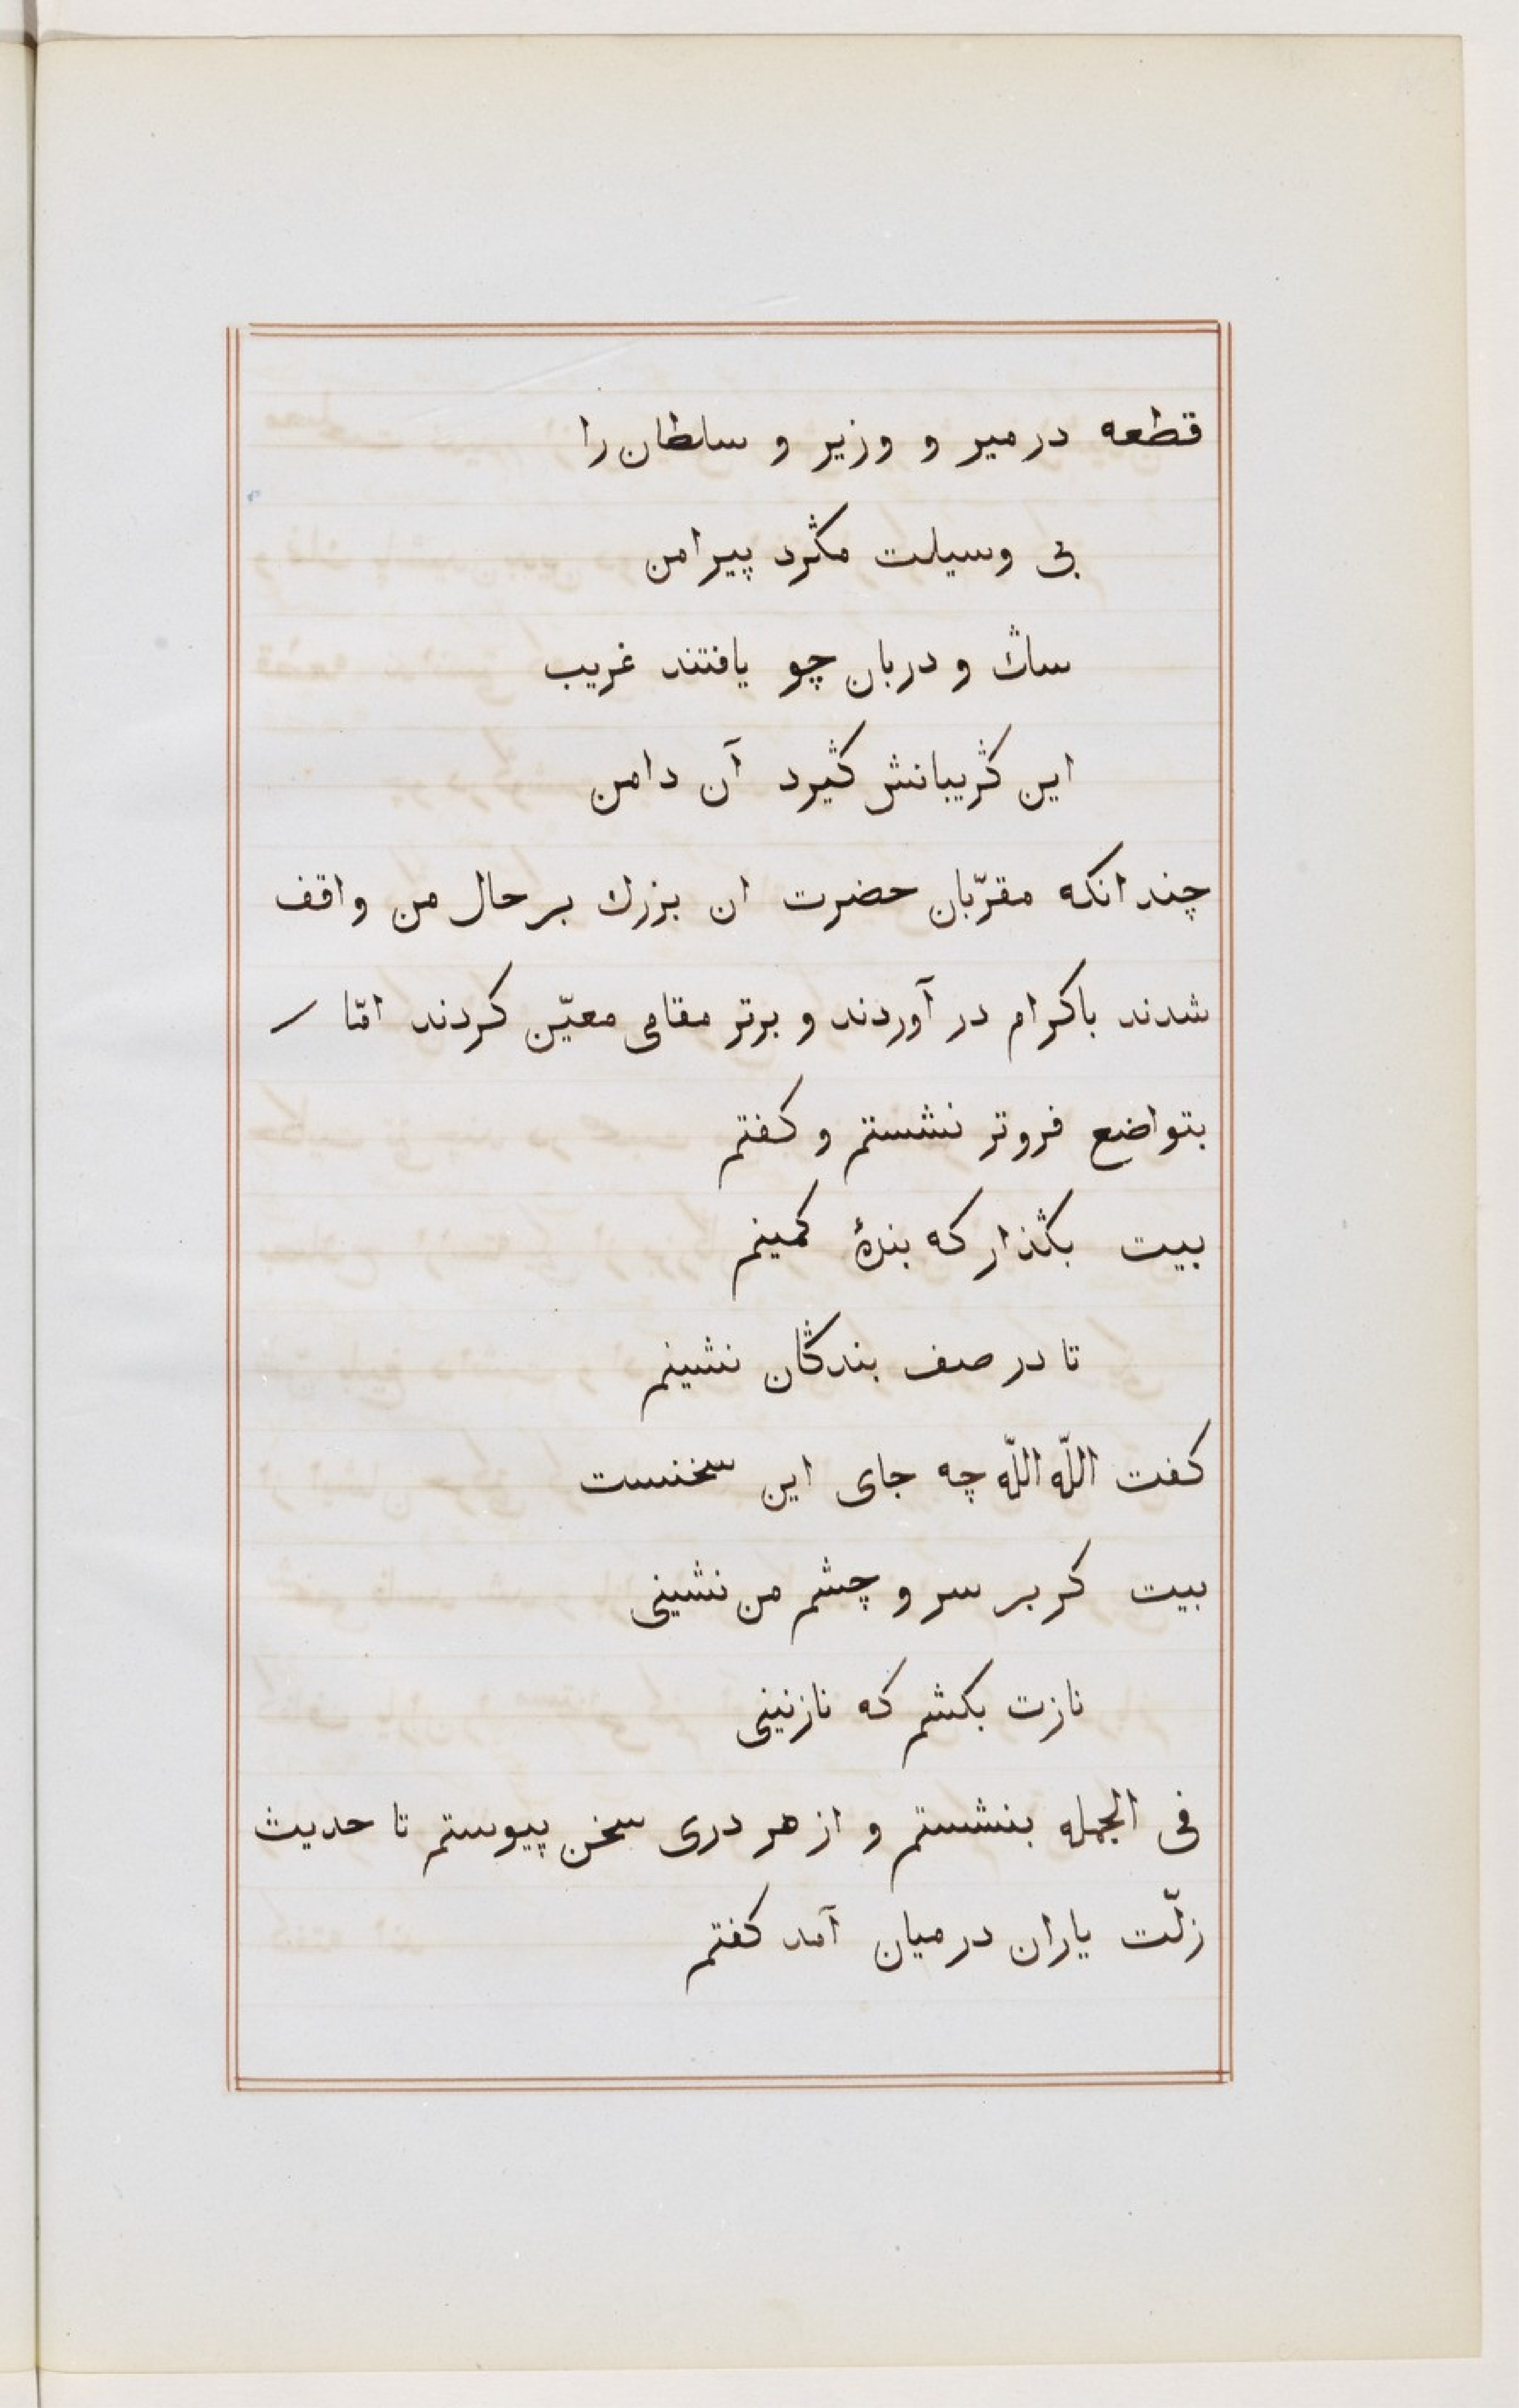 قطعه در میر و وزیر و سلطان را
بی وسیلت مگرد پیرامن
سگ و دربان چو یافتند غریب
این گریبانش گیرد آن دامن
چندانکه مقرّبان حضرت ان بزرك بر حال من واقف
شدند باکرام در آوردند و برتر مقامی معیّن کردند امّا
بتواضع فروتر نشستم و کفتم
بیت بگذار که بندهٔ کمینم
تا در صف بندگان نشینم
کفت اللّه اللّه چه جای این سخنست
بیت کر بر سر و چشم من نشینی
نازت بکشم که نازنینی
فی الجمله بنشستم و از هر دری سخن پیوستم تا حدیث
زلّت یاران در میان آمد کفتم